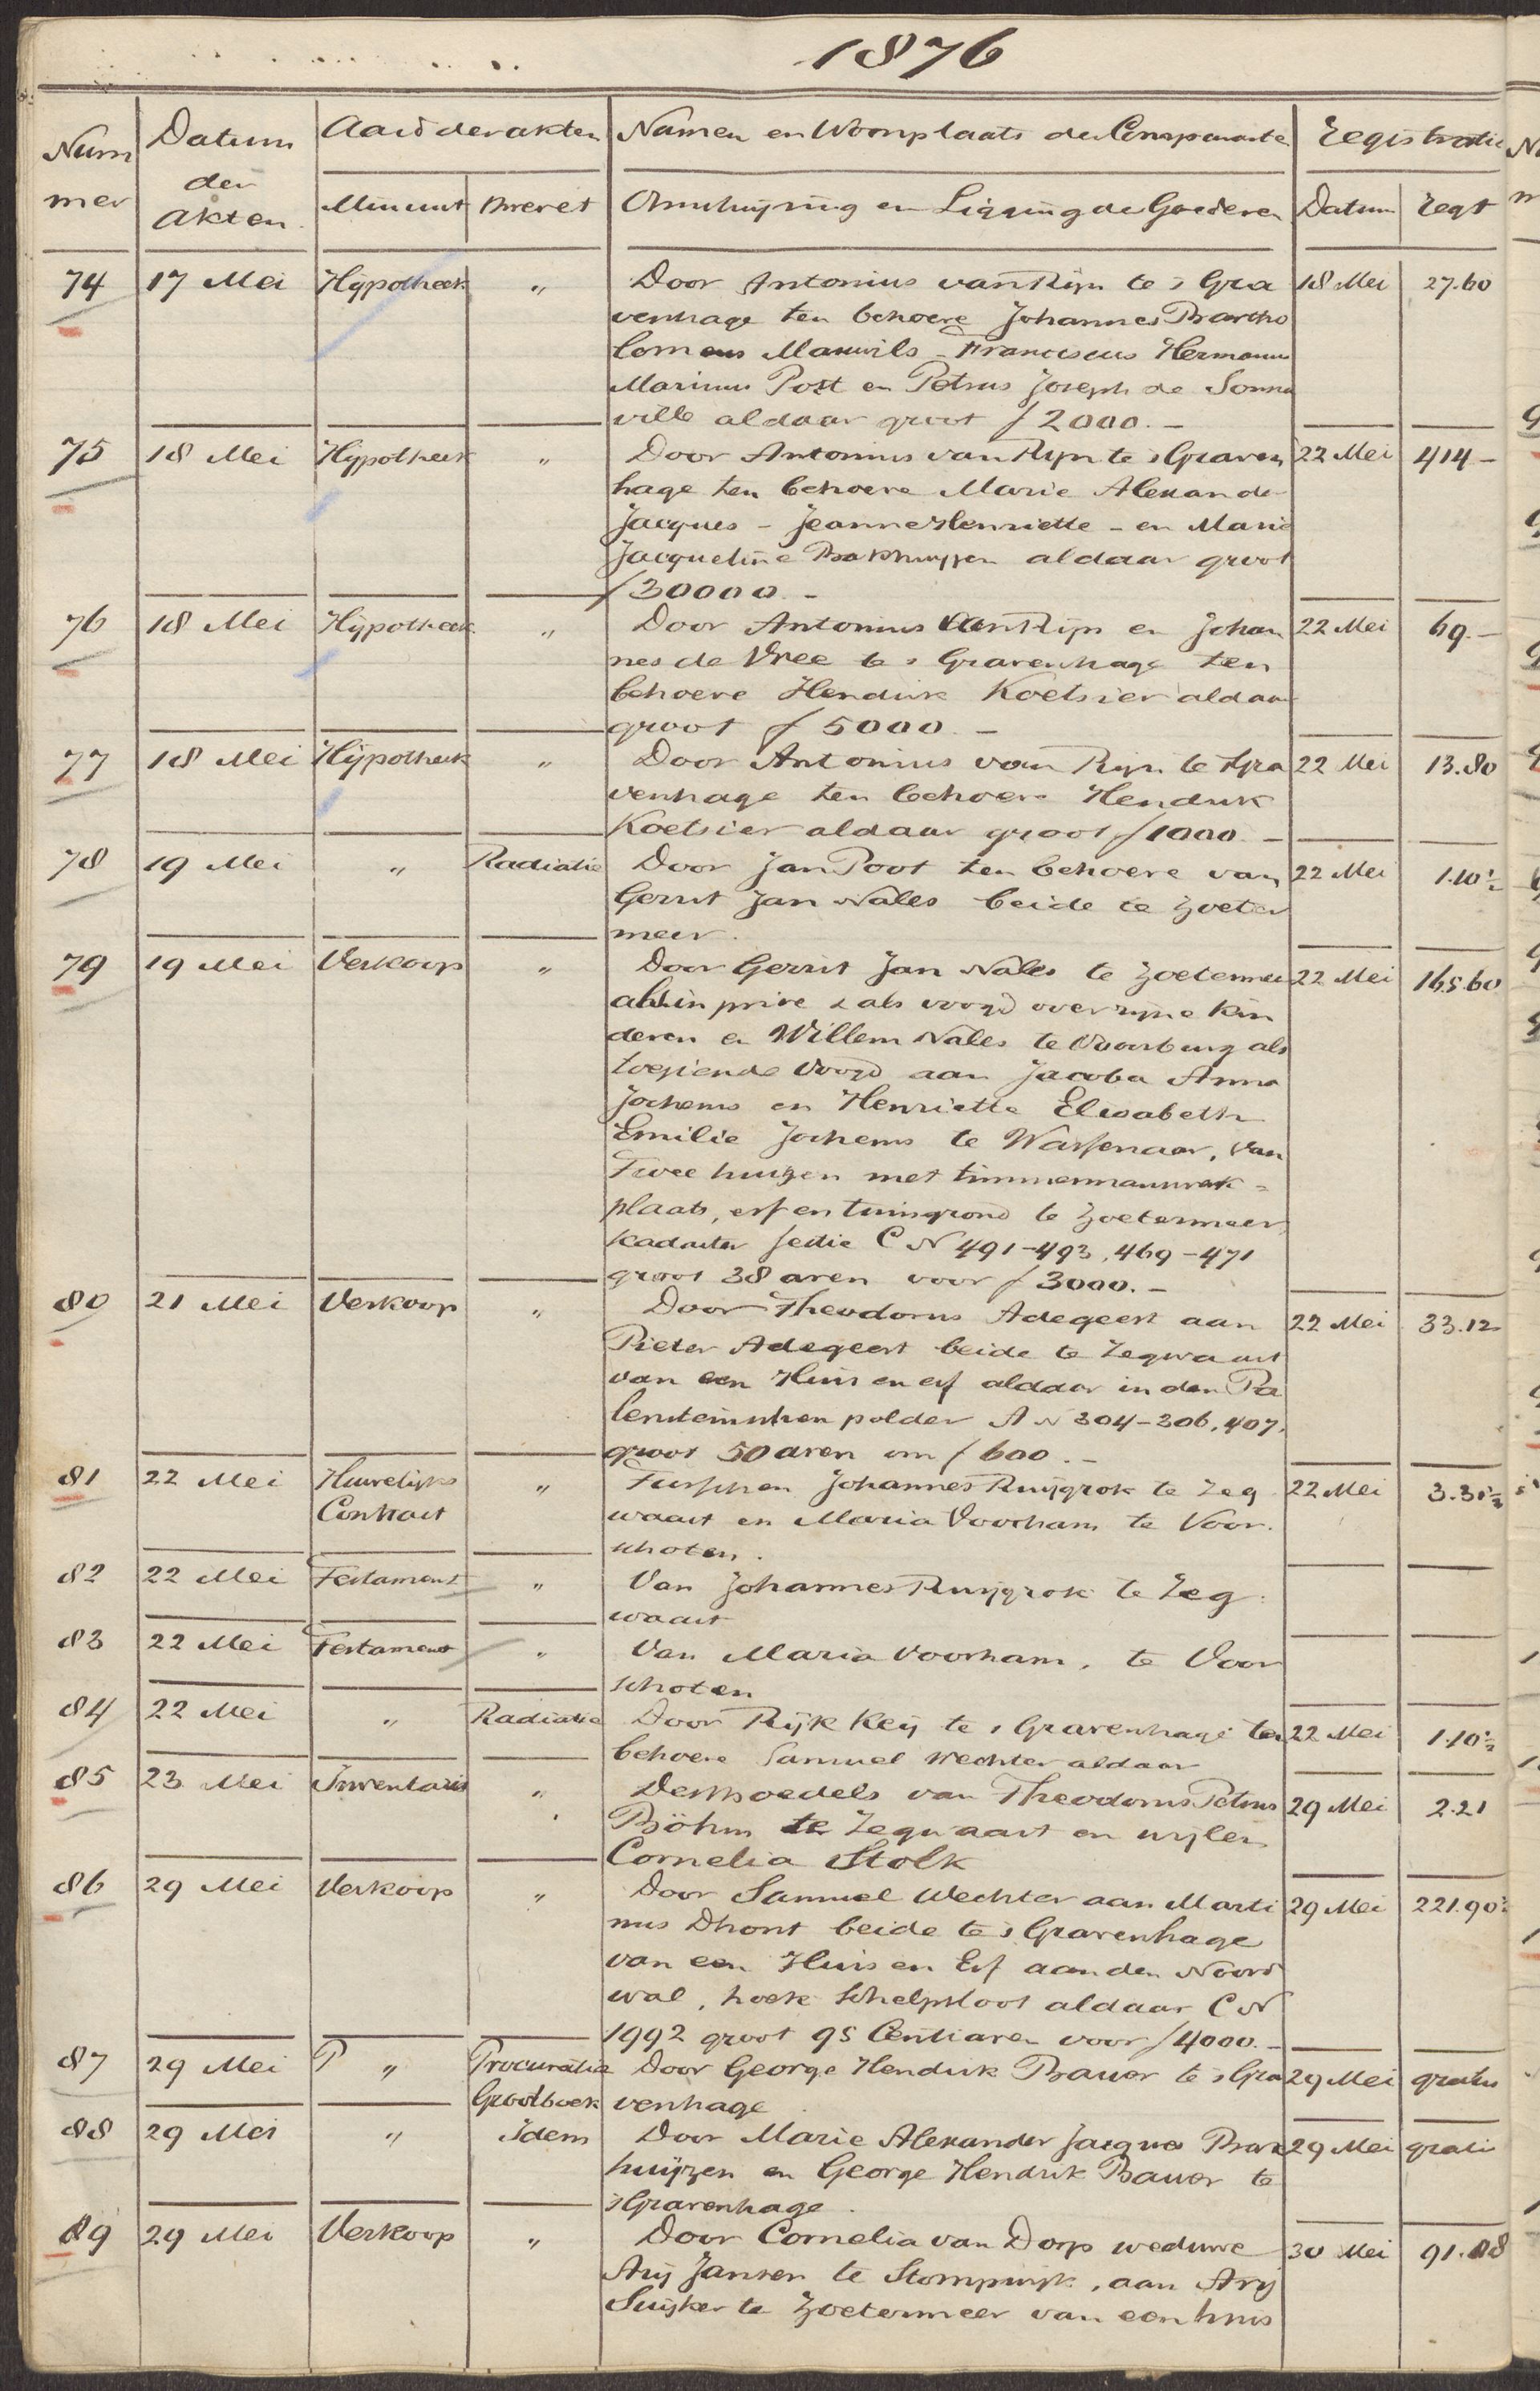 1876
Nummer | Datum der akten | Aard der akten | Namen en Woonplaats der Comparante | Registratie
Minuut | Brevet | Omschrijving en Ligging der Goederen | Datum | regt
74 | 17 Mei | Hypotheek | „ | Door Antonius van Rijn te s Gra | 18 Mei | 27.60
venhage ten behoeve Johannes Bartho
lomeus Mauwils - Franciscus Hermanus
Marinus Post en Petrus Joseph de Sonna
ville aldaar groot f 2000.-
75 | 18 Mei | Hypotheek | „ | Door Antonius van Rijn te s Graven | 22 Mei | 414-
hage ten behoeve Marie Alexander
Jacques - Jeanne Henriette - en Marie
Jacqueline Bakhuyzen aldaar groot
f 30000.-
76 | 18 Mei | Hypotheek | „ | Door Antonius van Rijn en Johan | 22 Mei | 69.-
nes de Vree te s Gravenhage ten
behoeve Hendrik Koetsier aldaar
groot f 5000.-
77 | 18 Mei | Hypotheek | „ | Door Antonius van Rijn te sGra | 22 Mei | 13.80
venhage ten behoeve Hendrik
Koetsier aldaar groot f 1000.-
78 | 19 Mei | „ | Radiatie | Door Jan Poot ten behoeve van | 22 Mei | 1.10½
Gerrit Jan Nales beide te Zoeter
meer.
79 | 19 Mei | Verkoop | „ | Door Gerrit Jan Nales te Zoetermeer | 22 Mei | 165.60
als voogd over zijne kin
deren en Willem Nales te Voorburg als
toeziende Voogd aan Jacoba Anna
Jochems en Henriette Elisabeth
Emilie Jochems te Wassenaar, van
Twee huizen met timmermanswerk=
plaats, erf en tuingrond te Zoetermeer,
kadaster sectie C N 491-493, 469-471
groot 38 aren voor f 3000.-
80 | 21 Mei | Verkoop | „ | Door Theodorus Adegeest aan | 22 Mei | 33.12
Pieter Adegeest beide te Zegwaart
van een Huis en erf aldaar in den Pa
lensteinschen polder A N 304-306, 407,
groot 50 aren om f 600.-
81 | 22 Mei | Huwelijks Contract | „ | Tusschen Johannes Ruijgrok te Zeg | 22 Mei | 3.31½
waart en Maria Voorham te Voor.
schoten.
82 | 22 Mei | Testament | „ | Van Johannes Ruijgrok te Zeg:
waart
83 | 22 Mei | Testament | „ | Van Maria Voorham, te Voor
schoten
84 | 22 Mei | „ | Radiatie | Door Rijk Keij te s Gravenhage ten | 22 Mei | 1.10½
behoeve Samuel Wechter aldaar
85 | 23 Mei | Inventaris | „ | Des boedels van Theodorus Petrus | 29 Mei | 2.21
Böhm te Zegwaart en wijlen
Cornelia Stolk
86 | 29 Mei | Verkoop | „ | Door Samuel Wechter aan Marti | 29 Mei | 221.90½
nus Dhont beide te s Gravenhage
van een Huis en Erf aan den Noord
wal, hoek Schelpsloot aldaar C N
1992 groot 95 Centiaren voor f 4000.-
87 | 29 Mei | „ | Procuratie Grootboek | Door George Hendrik Bauer te s Gra | 29 Mei | gratis
venhage
88 | 29 Mei | „ | Idem | Door Marie Alexander Jacques Bak | 29 Mei | gratis
huijzen en George Hendrik Bauer te
sGravenhage.
89 | 29 Mei | Verkoop | „ | Door Cornelia van Dorp weduwe | 30 Mei | 91.08
Arij Jansen te Stompwijk, aan Arij
Suijker te Zoetermeer van een huis